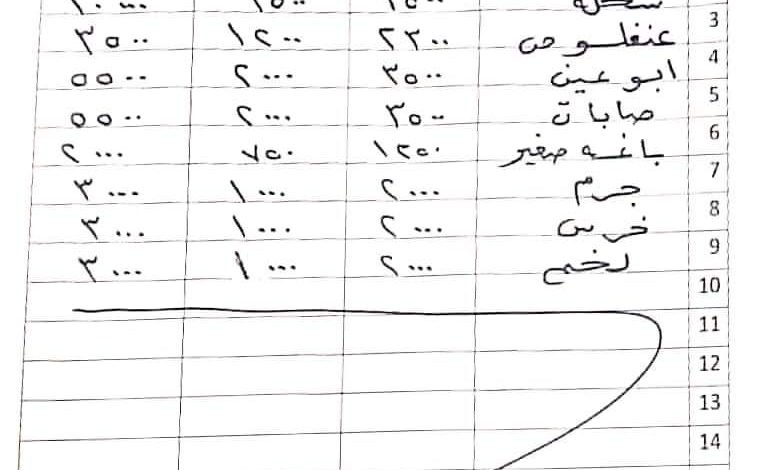 3
عنفلوص ٢٣٠٠ ١٢٠٠ ٣٥٠٠
4
ابو عين ٣٥٠٠ ٢٠٠٠ ٥٥٠٠
5
صابات ٣٥٠٠ ٢٠٠٠ ٥٥٠٠
6
باغه صغير ١٢٥٠ ٧٥٠ ٢٠٠٠
7
جرم ٢٠٠٠ ١٠٠٠ ٣٠٠٠
8
خرس ٢٠٠٠ ١٠٠٠ ٣٠٠٠
9
لخم ٢٠٠٠ ١٠٠٠ ٣٠٠٠
10
11
12
13
14